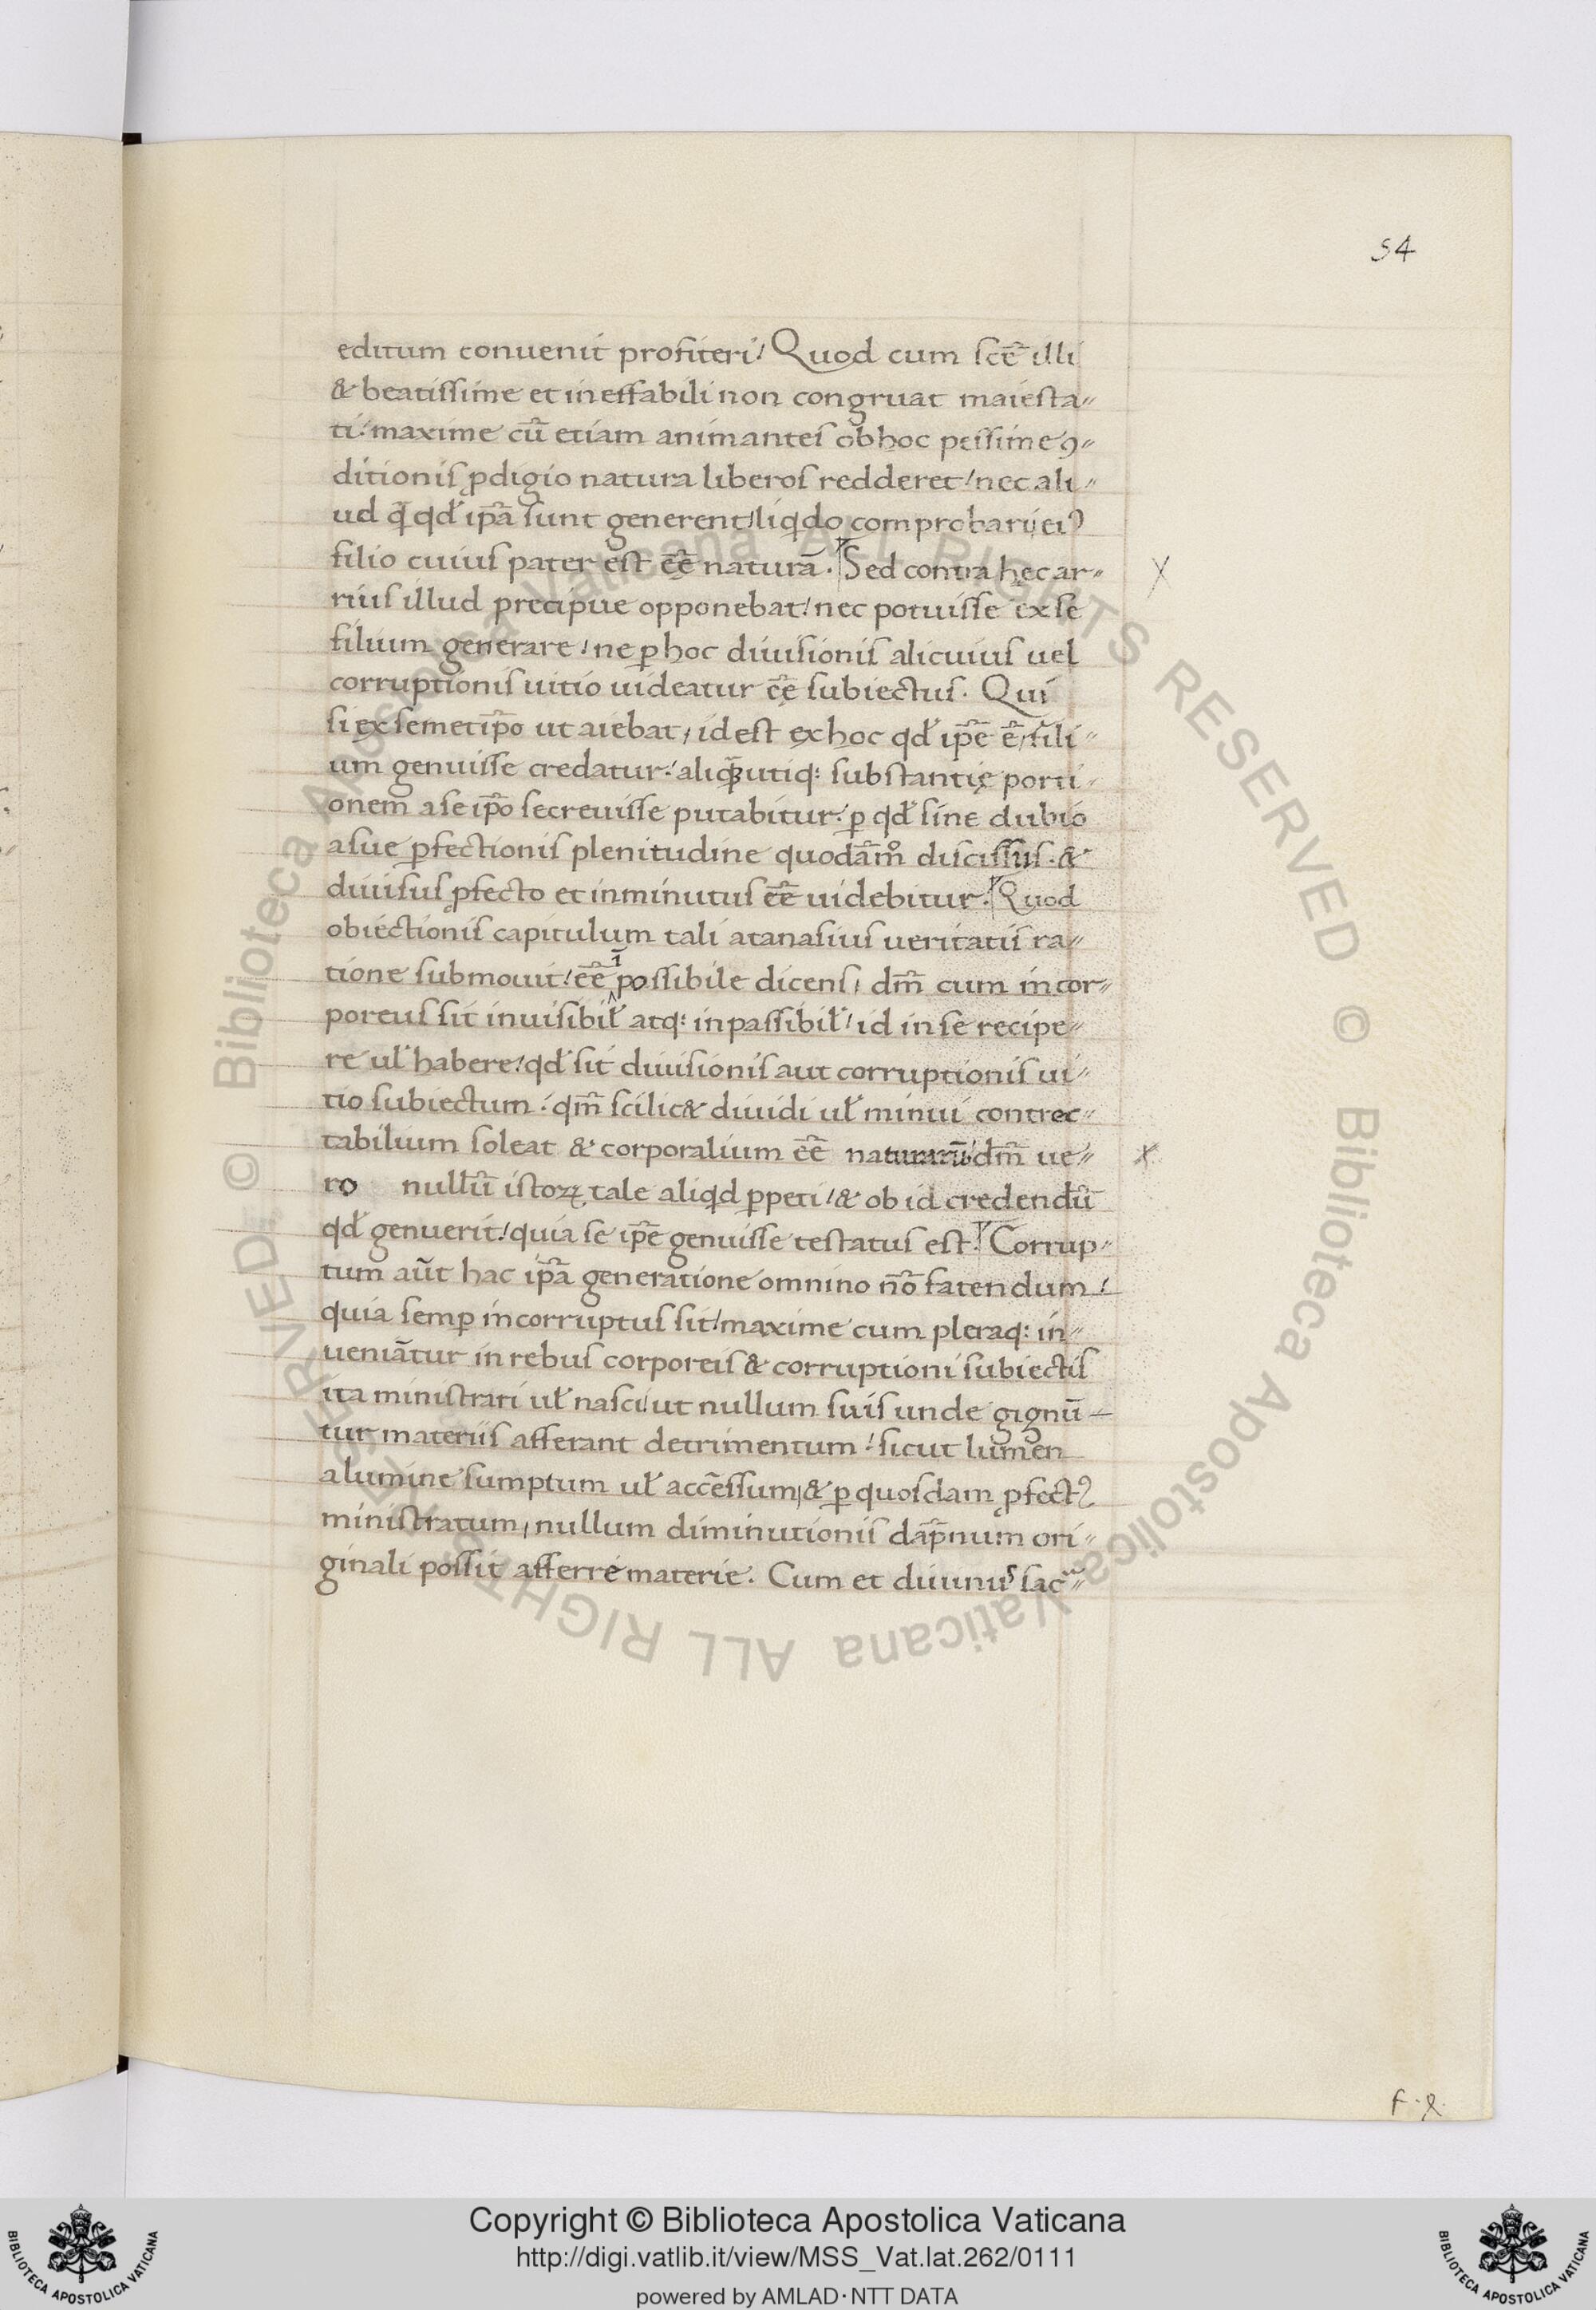 54
editum conuenit profiteri. Quod cum scẽ illi
& beatissime et ineffabili non congruat maiesta〃
ti: maxime cũ etiam animantes ob hoc pessime ꝯ〃
ditionis ꝓdigio natura liberos redderet: nec ali〃
ud ꝗ̃ qđ ip̃a sunt generent: liqꝺo comprobari: ei᾿
filio cuius pater est eẽ naturã. Sed contra hęc ar〃
rius illud precipue opponebat: nec potuisse ex se
filium generare: ne ꝑ hoc diuisionis alicuius uel
corruptionis uitio uideatur eẽ subiectus. Qui
si ex semetip̃o ut aiebat, id est ex hoc qđ ip̃e ẽ, fili〃
um genuisse credatur: aliquã utiq: substantię porti〃
onem a se ip̃o secreuisse putabitur: ꝑ qđ sine dubio
a sue ꝑfectionis plenitudine quodãm̊ discissus. &
diuisus ꝓfecto et inminutus eẽ uidebitur. Quod
obiectionis capitulum tali atanasius ueritatis ra〃
tione submouit: eẽ ī possibile dicens, dm̃ cum incor〃
poreus sit inuisibił atq: inpassibił: id in se recipe〃
re uł habere: qđ sit diuisionis aut corruptionis ui〃
tio subiectum: qm̃ scilic& diuidi uł minui contrec〃
tabilium soleat & corporalium eẽ naturarũ: dm̃ ue〃
ro nullũ istoꝝ tale aliqd ꝑpeti: & ob id credendũ
qđ genuerit: quia se ip̃e genuisse testatus est. Corrup〃
tum aũt hac ip̃a generatione omnino nõ fatendum:
quia semꝑ incorruptus sit: maxime cum pleraq: in〃
ueniãtur in rebus corporeis & corruptioni subiectis
ita ministrari uł nasci: ut nullum suis unde gignũ—
tur materiis afferant detrimentum: sicut lumen
a lumine sumptum uł accẽssum, & ꝑ quosdam ꝓfect᾿
ministratum, nullum diminutionis dãpnum ori〃
ginali possit afferre materie. Cum et diuinus sac〃
F. R.
© Biblioteca Apostolica Vaticana ALL RIGHTS RESERVED © Biblioteca Apostolica Vaticana ALL RIGHTS RESERVED
BIBLIOTECA APOSTOLICA VATICANA
Copyright © Biblioteca Apostolica Vaticana
http://digi.vatlib.it/view/MSS_Vat.lat.262/0111
powered by AMLAD·NTT DATA
BIBLIOTECA APOSTOLICA VATICANA